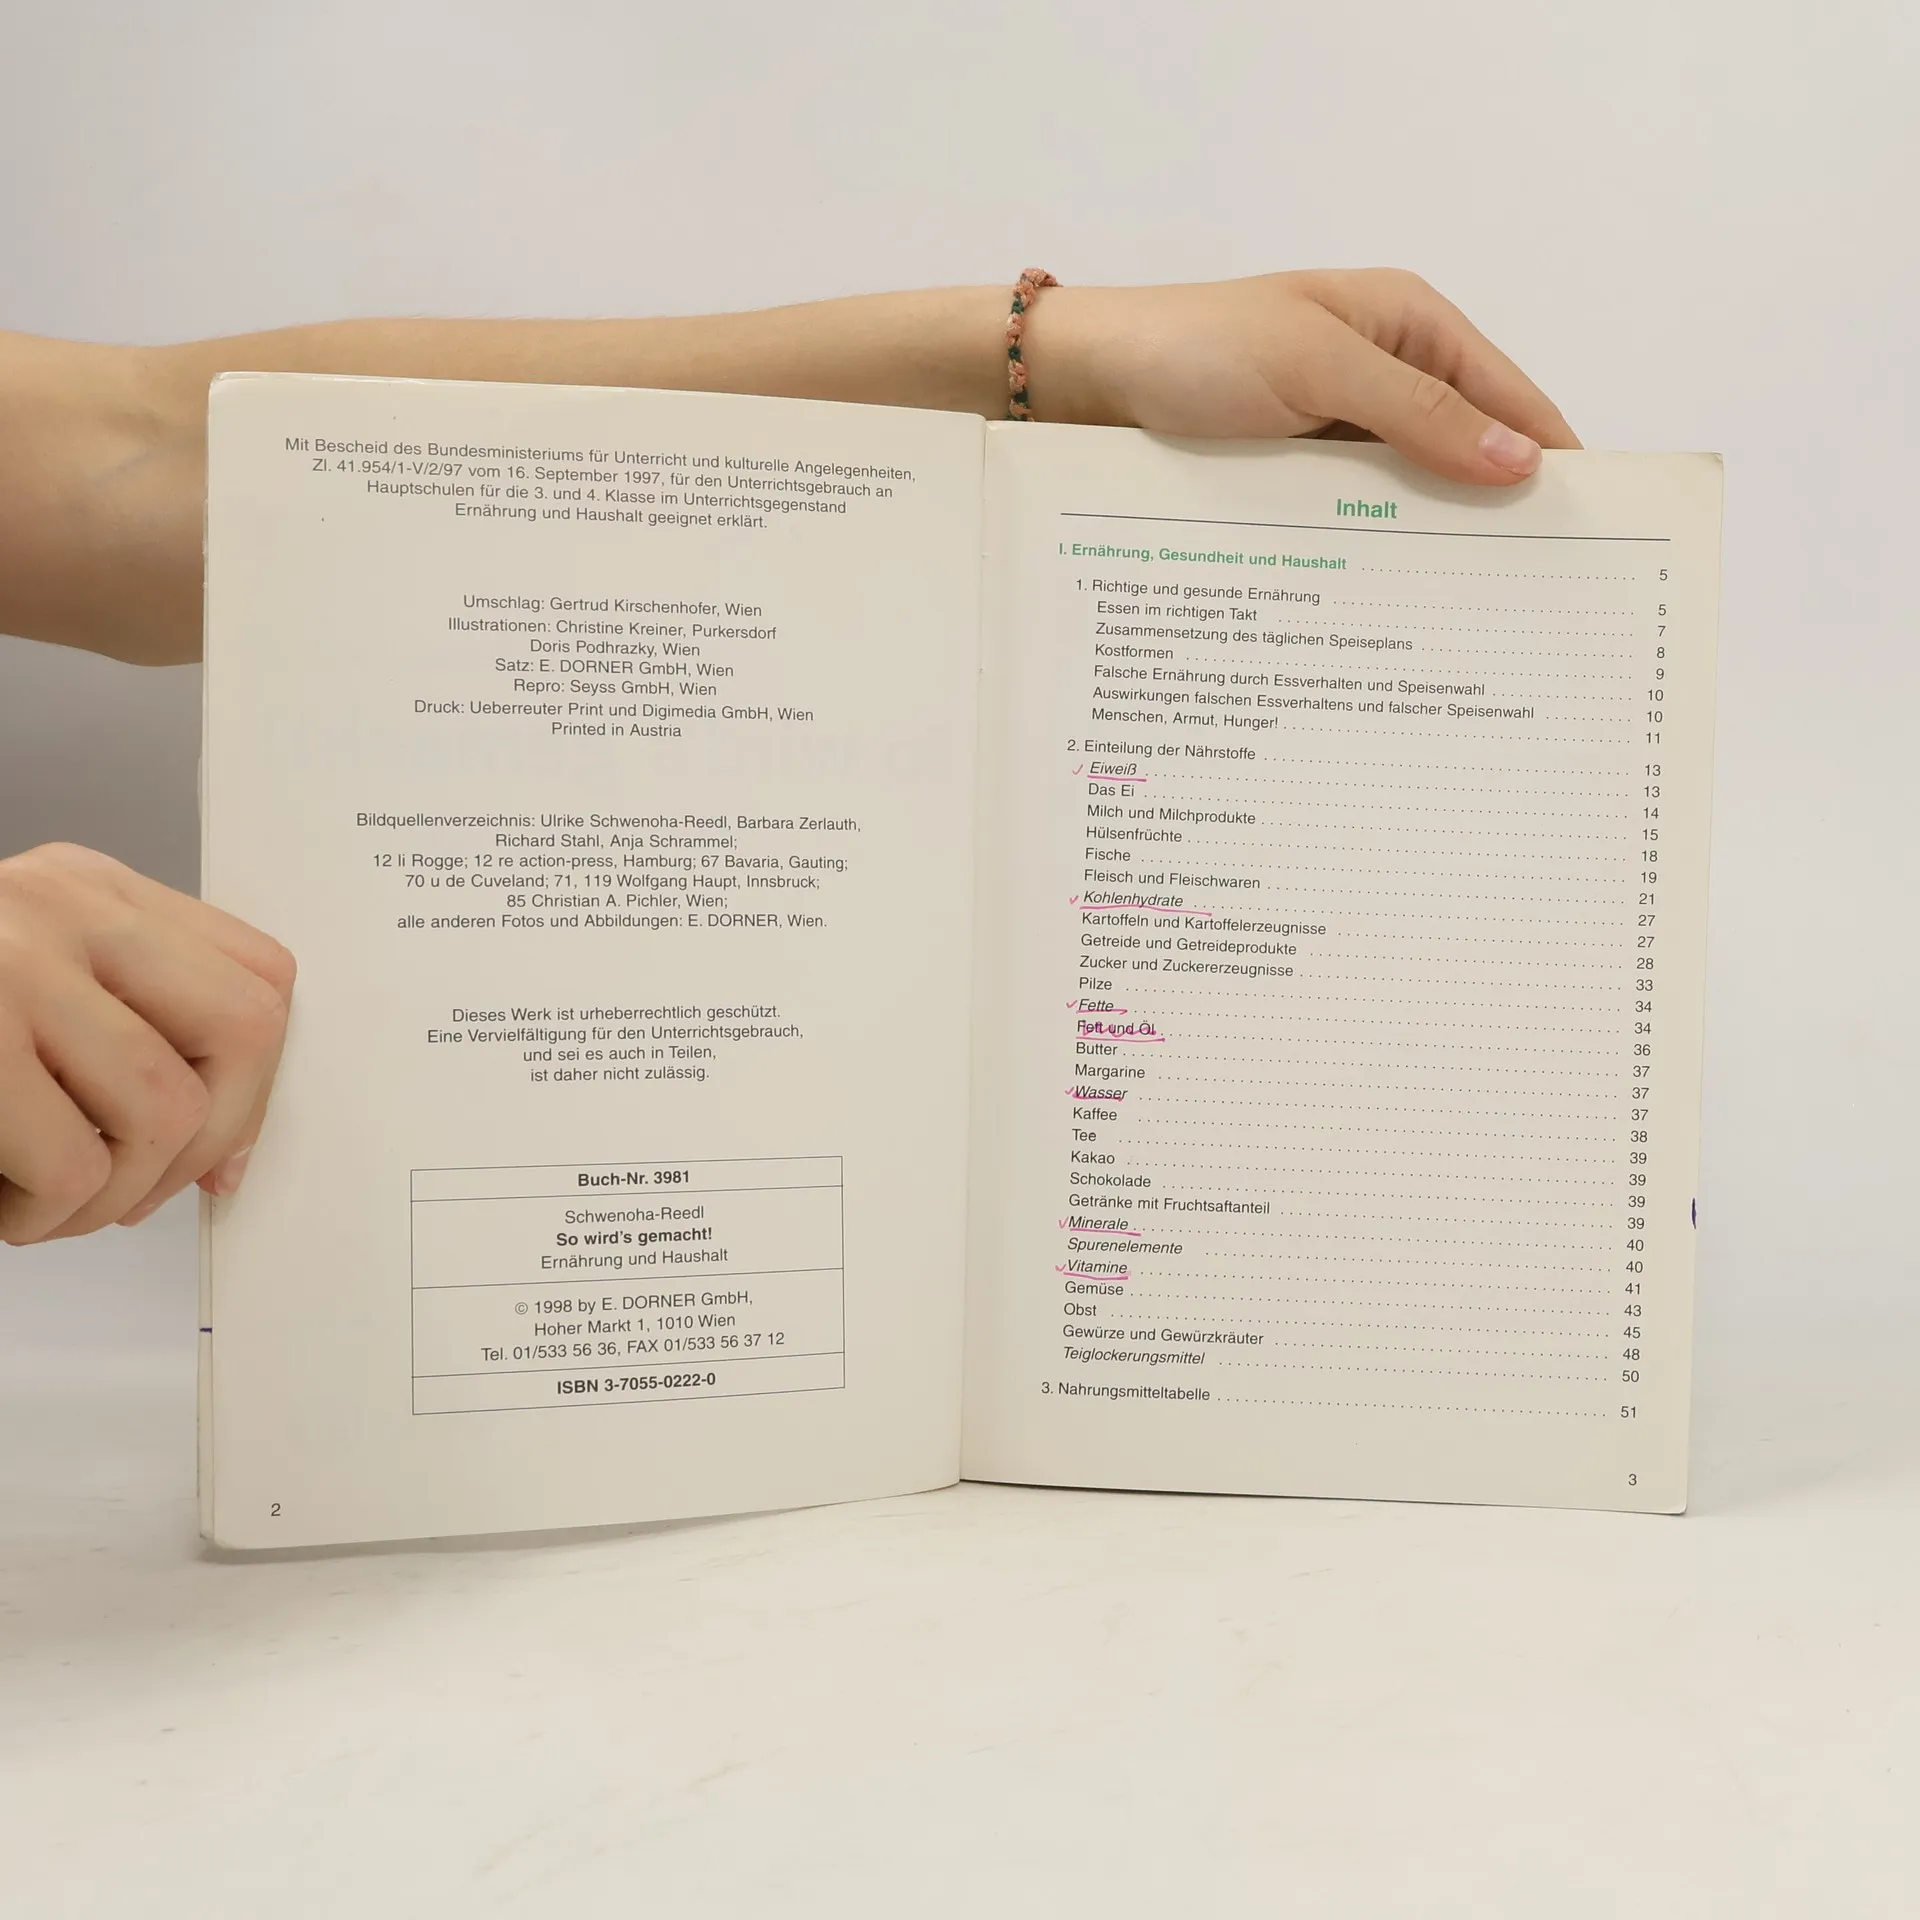 Mit Bescheid des Bundesministeriums für Unterricht und kulturelle Angelegenheiten,
Zl. 41.954/1-V/2/97 vom 16. September 1997, für den Unterrichtsgebrauch an
Hauptschulen für die 3. und 4. Klasse im Unterrichtsgegenstand
Ernährung und Haushalt geeignet erklärt.
Umschlag: Gertrud Kirschenhofer, Wien
Illustrationen: Christine Kreiner, Purkersdorf
Doris Podhrazky, Wien
Satz: E. DORNER GmbH, Wien
Repro: Seyss GmbH, Wien
Druck: Ueberreuter Print und Digimedia GmbH, Wien
Printed in Austria
Bildquellenverzeichnis: Ulrike Schwenoha-Reedl, Barbara Zerlauth,
Richard Stahl, Anja Schrammel;
12 li Rogge; 12 re action-press, Hamburg; 67 Bavaria, Gauting;
70 u de Cuveland; 71, 119 Wolfgang Haupt, Innsbruck;
85 Christian A. Pichler, Wien;
alle anderen Fotos und Abbildungen: E. DORNER, Wien.
Dieses Werk ist urheberrechtlich geschützt.
Eine Vervielfältigung für den Unterrichtsgebrauch,
und sei es auch in Teilen,
ist daher nicht zulässig.
Buch-Nr. 3981
Schwenoha-Reedl
So wird's gemacht!
Ernährung und Haushalt
© 1998 by E. DORNER GmbH,
Hoher Markt 1, 1010 Wien
Tel. 01/533 56 36, FAX 01/533 56 37 12
ISBN 3-7055-0222-0
2
Inhalt
I. Ernährung, Gesundheit und Haushalt 5
1. Richtige und gesunde Ernährung 5
Essen im richtigen Takt 7
Zusammensetzung des täglichen Speiseplans 8
Kostformen 9
Falsche Ernährung durch Essverhalten und Speisenwahl 10
Auswirkungen falschen Essverhaltens und falscher Speisenwahl 10
Menschen, Armut, Hunger! 11
2. Einteilung der Nährstoffe 13
Eiweiß 13
Das Ei 14
Milch und Milchprodukte 15
Hülsenfrüchte 18
Fische 19
Fleisch und Fleischwaren 21
Kohlenhydrate 27
Kartoffeln und Kartoffelerzeugnisse 27
Getreide und Getreideprodukte 28
Zucker und Zuckererzeugnisse 33
Pilze 34
Fette 34
Fett und Öl 36
Butter 37
Margarine 37
Wasser 37
Kaffee 38
Tee 39
Kakao 39
Schokolade 39
Getränke mit Fruchtsaftanteil 39
Minerale 40
Spurenelemente 40
Vitamine 41
Gemüse 43
Obst 45
Gewürze und Gewürzkräuter 48
Teiglockerungsmittel 50
3. Nahrungsmitteltabelle 51
3